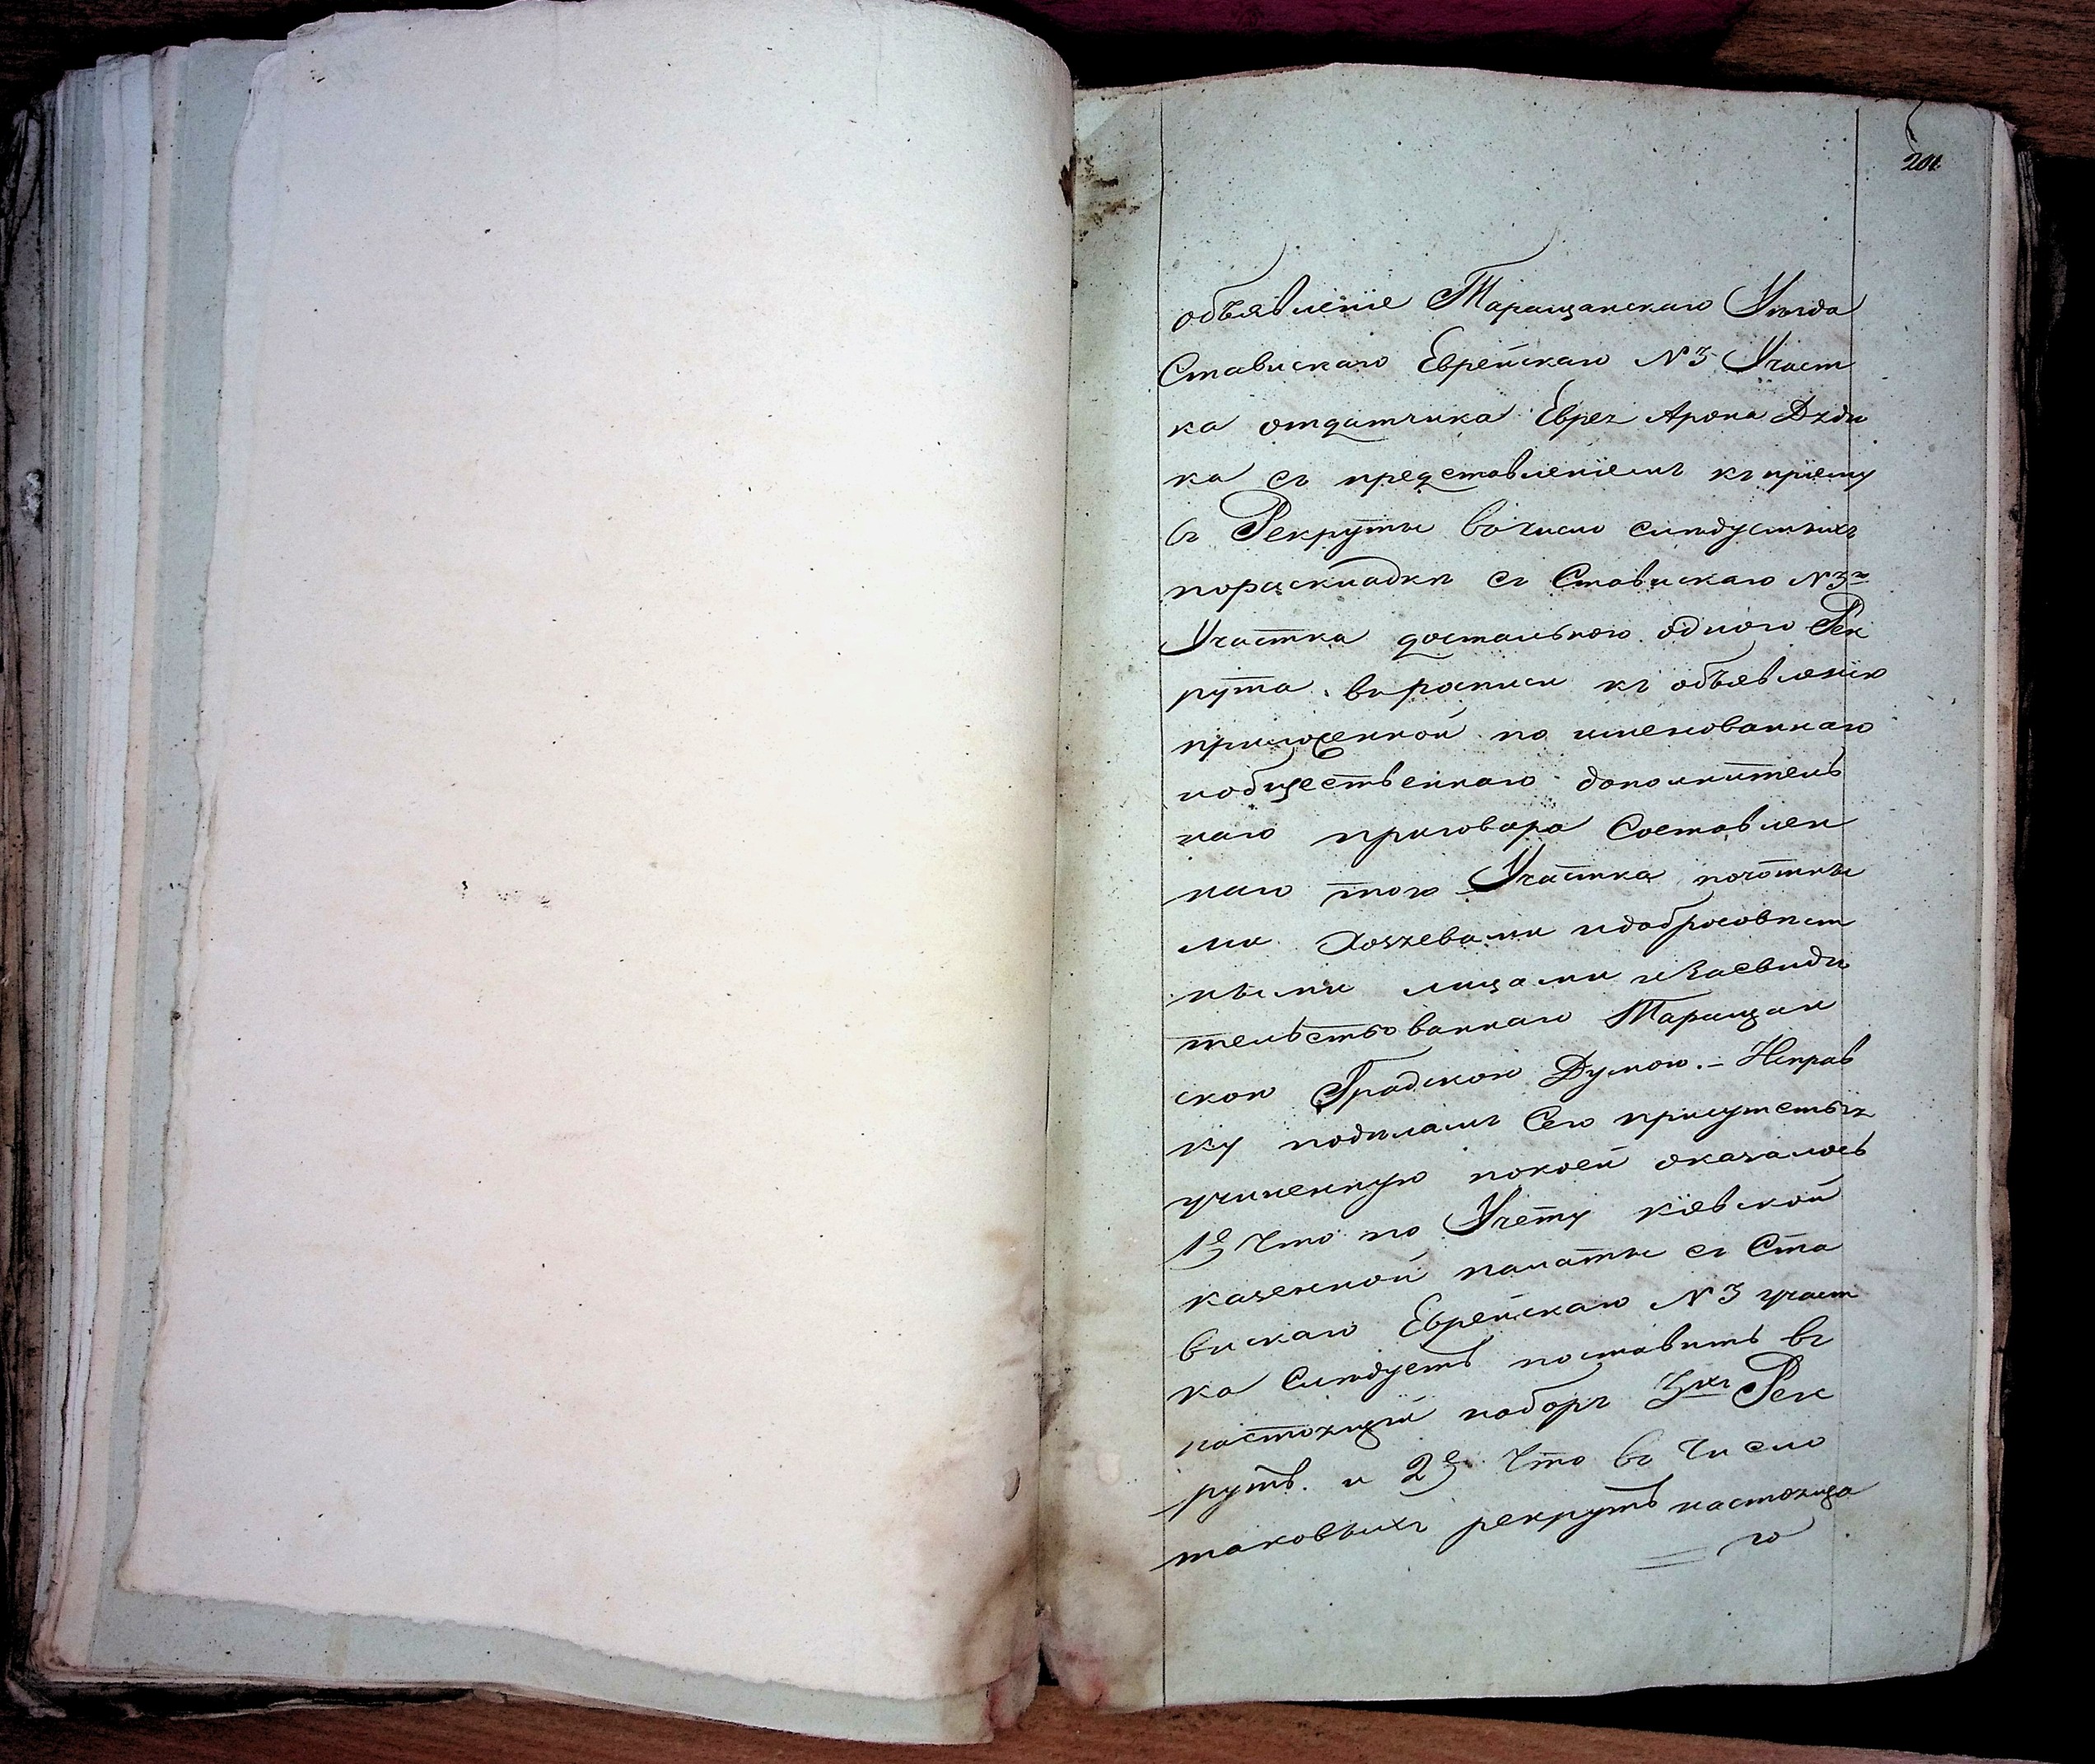 201
объявленіе Таращанскаго Уѣзда
Ставискаго Еврейскаго №3 Участ
ка отдатчика Еврея Арона
ка съ представленіемъ къ пріему
въ Рекруты вочисло слѣдуемыхъ
пораскладкѣ съ Ставискаго №3го
Участка достального одного Рек
рута. въ росписи къ объявленію
приложенной по именованнаго
иобщественнаго дополнитель
наго приговора Составлен
наго того Участка почотны
ми Хозяевами идобросовѣст
ными лицами и Засвиди
тельствованнаго Таращан
скою Градскою Думою. – Исправ
ку подѣламъ Сего присутствія
учиненную покоей оказалось
1е Что по Учету кіевской
казенной палаты съ Ста
вискаго Еврейскаго №3 участ
ка Слѣдуетъ поставить въ
настоящій наборъ 3хъ Рек
рутъ. и 2е Что въ Число
таковыхъ рекрутъ настояща
го